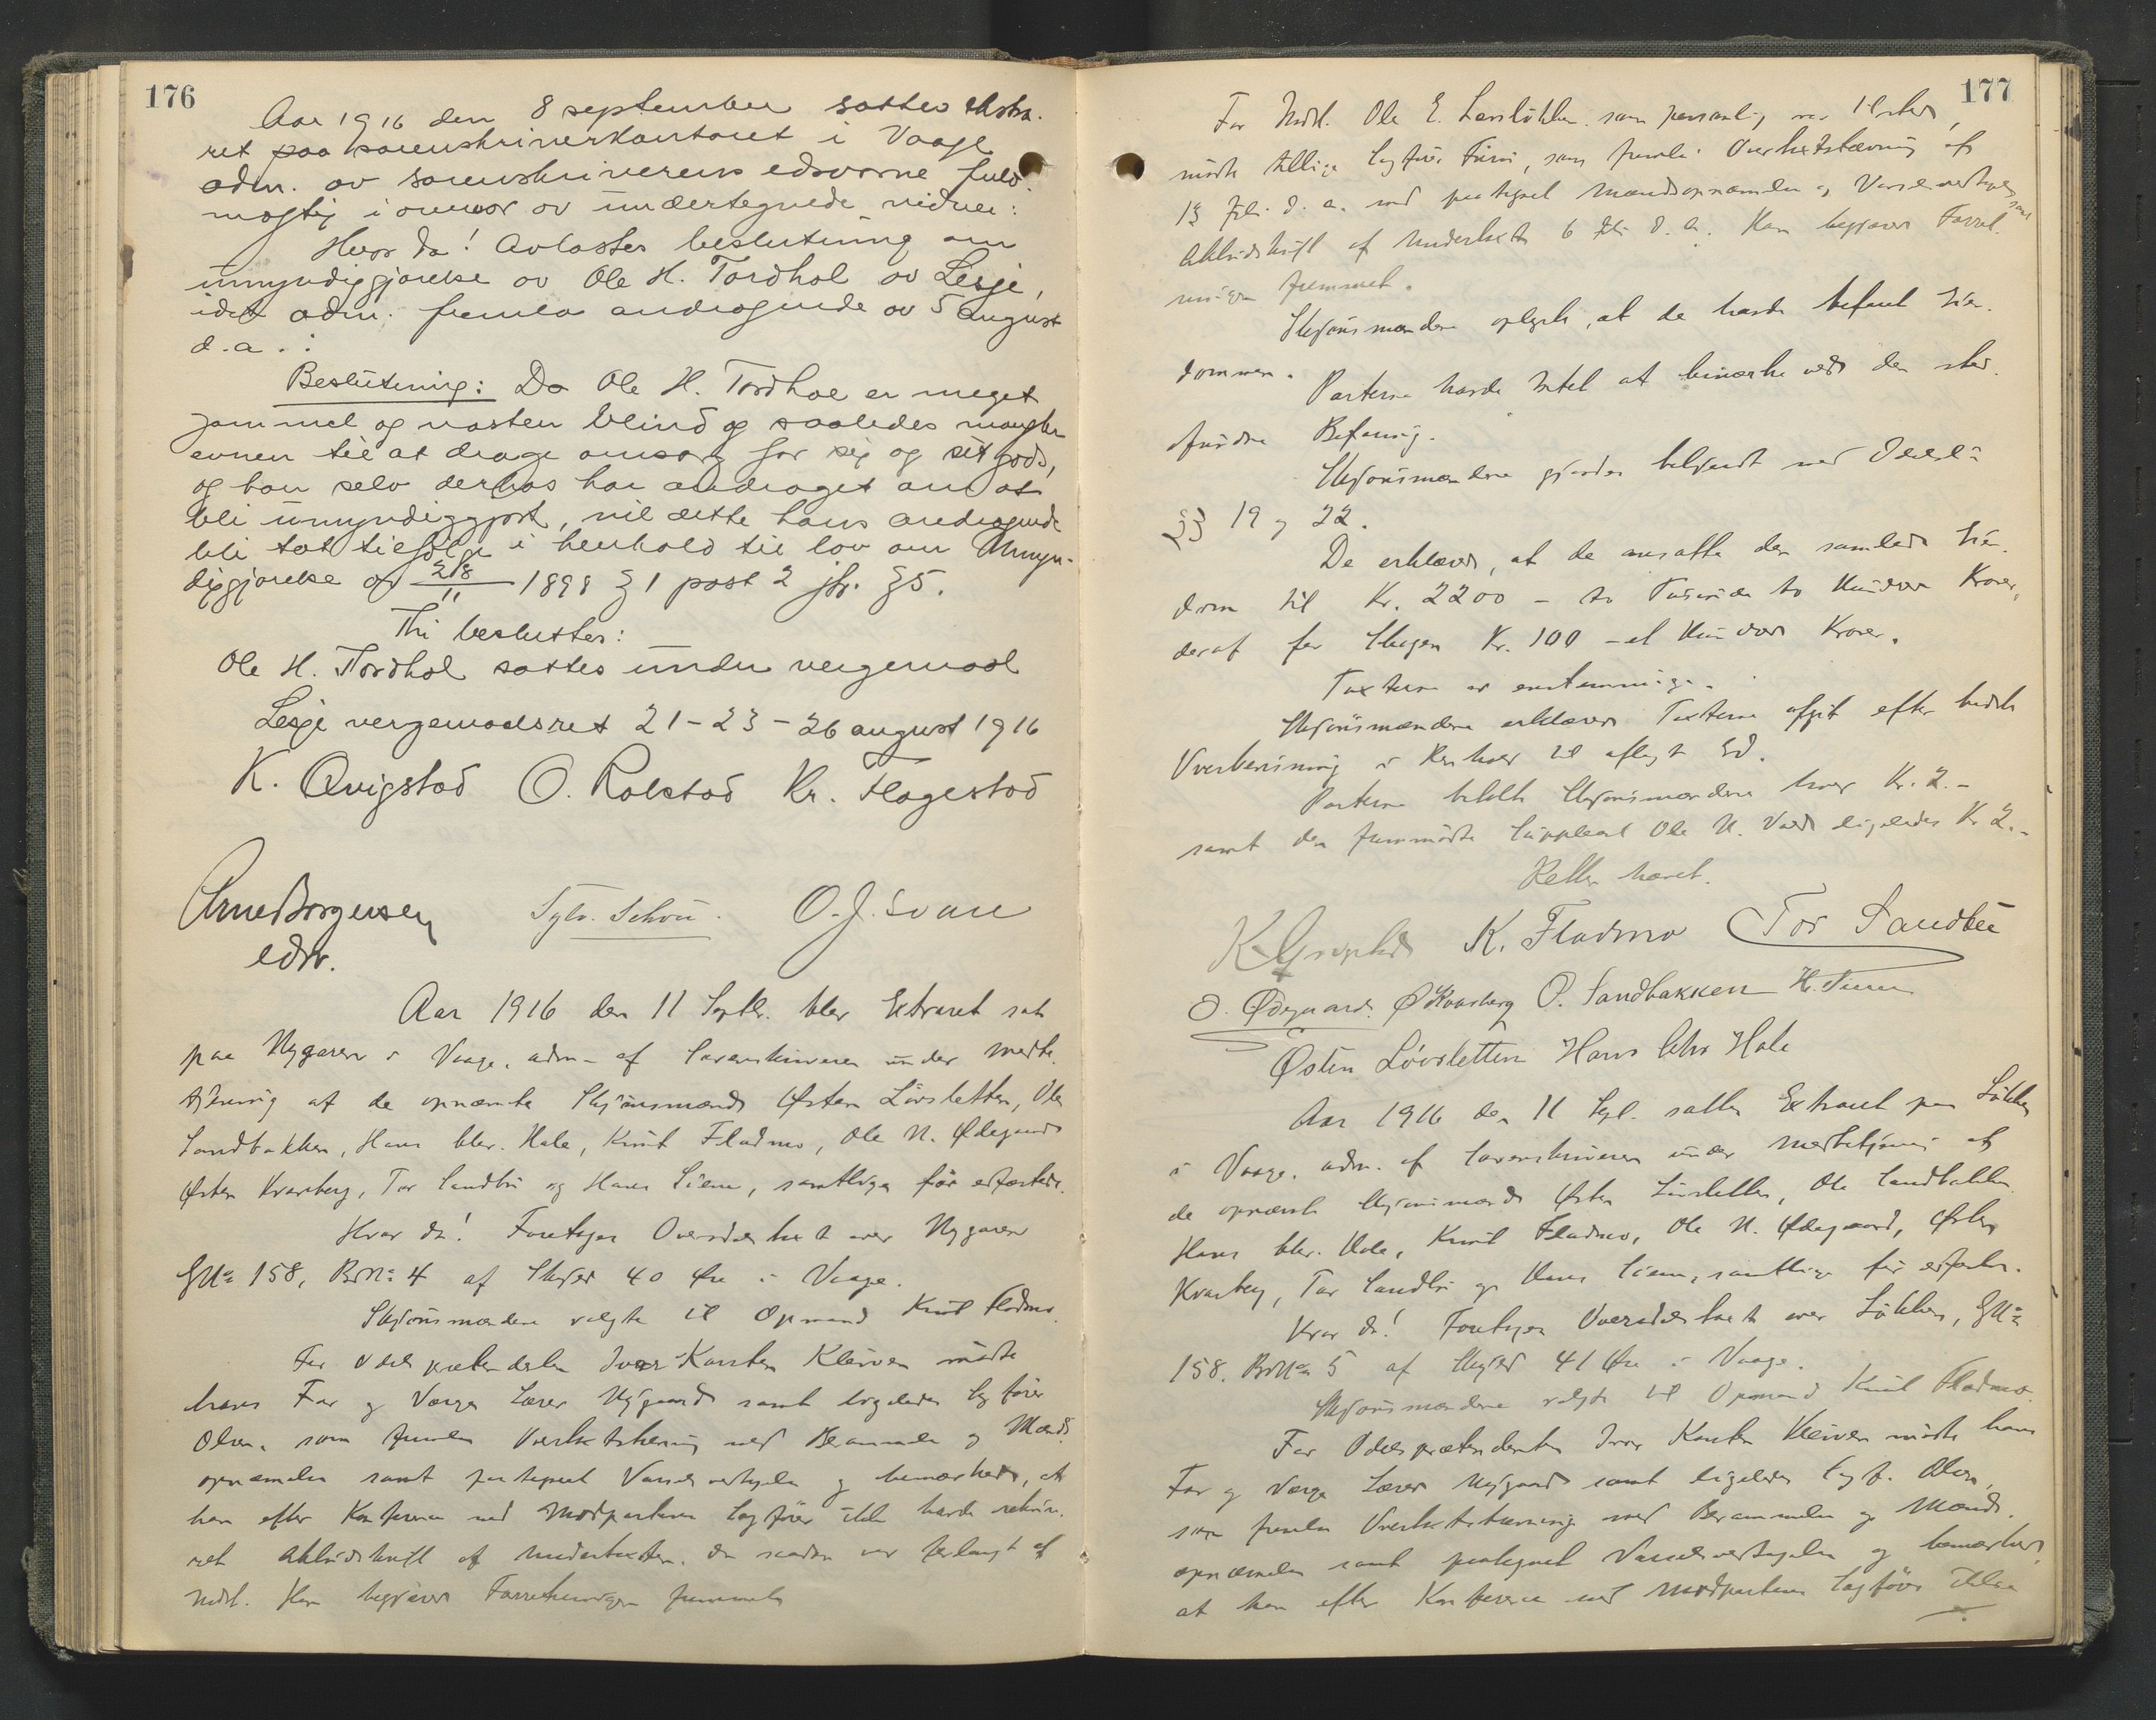 176
Aar 1916 den 8 september sattes ekstra-
ret paa sorenskriverkontoret i Vaage
adm. av sorenskriverens edsvorne fuld-
mægtig i overvær av undertegnede vidner:
Hvor da! Avlastes beslutning om
umyndiggjørelse av Ole H. Tordhol av Lesje,
idet adm. fremla andragende av 5 august
d.a.:
Beslutning: Da Ole H. Tordhol er meget
gammel og næsten blind og saaledes mangler
evnen til at drage omsorg for sig og sit gods,
og han selv derhos har andraget om at
bli umyndiggjort, vil dette hans andragende
bli tat tilfølge i henhold til lov om Umyn-
diggjørelse av 28/11 1898 § 1 post 2 jfr. § 5.
Thi besluttes:
Ole H. Tordhol sættes under vergemaal
Lesje vergemaalsret 21-23-26 august 1916
K. Qvigstad O. Rolstad Kr. Hagestad
Arne Borgersen Sylv. Schou. O. J. Svare
edsv.
Aar 1916 den 11 Septbr. blev Extraret sat
paa Nygaren i Vaage, adm. af Sorenskriveren under Medbe-
tjening af de opnævnte Skjønsmænd Østen Lövsletten, Ole
Sandbakken, Hans Chr. Hole, Knut Fladmo, Ole N. Ødegaard
Østen Kvarberg, Tor Sandbu og Hans Siem, samtlige før edfæstede.
Hvor da! Foretages Overodelstaxt over Nygaren
GNo 158, BrNo 4 af Skyld 40 Øre i Vaage.
Skjønsmændene valgte til Opmand Knut Fladmo.
For Odelsprætendenten Ivar Karsten Kleiven mødte
hans Far og Værge Lærer Nygaard samt ligeledes Sagfører
Olsen, som fremla Overtaxtstævning med Berammelse og Mands-
opnævnelse samt paategnet Varselsvedtagelse og bemærkede, at
han efter Konferance med Modpartens Sagfører ikke havde rekvire-
ret Akkidskrift af Undertaxten, da saadan var forlangt af
Modp. Han begjærede Forretningen fremmet
177
For Modp. Ole E. Larsløkken som personlig var tilstede,
mødte tillige Sagfører, som fremla Overtaxtstævning af
13 d. a. med paategnet Mandsopnævnelse og Varselsvedtagelse samt
Aktudskrift af Undertaxten 6 d. a. Han begjærer Forret-
ningen fremmet.
Skjønsmændene oplyste, at de havde befaret Eien-
dommen.
Parterne havde Intet at bemærke ved den sted-
fundne Befaring.
Skjønsmændene gjordes bekjendt med Odelsl.
§§ 19 og 22.
De erklærede, at de ansatte den samlede Eien-
dom til Kr. 2200 – to Tusinde to Hundrede Kroner,
deraf for Skogen Kr. 100 – et Hundrede Kroner.
Taxterne er enstemmige.
Skjønsmændene erklærede Taxterne afgit efter bedste
Overbevisning i Henhold til aflagt Ed.
Parterne betalte Skjønsmændene hver Kr. 2.-
samt den fremmødte Suppleant Ole N. Vole ligeledes Kr 2.-
Retten hævet.
K. Fladmo Tor Sandbu
O. Ødegaard. Ø Kvarberg O. Sandbakken H. Siem
Østen Lövsletten Hans Chr Hole
Aar 1916 den 11 Sept. sattes Extraret paa Løkken
i Vaage, adm. af Sorenskriveren under Medbetjening af
de opnævnte Skjønsmænd Østen Lövsletten, Ole Sandbakken
Hans Chr. Hole, Knut Fladmo, Ole N. Ødegaard, Østen
Kvarberg, Tor Sandbu og Hans Siem, samtlige før edfæstede.
Hvor da! Foretages Overodelstaxt over Løkken, GNo
158, BrNo 5 af Skyld 41 Øre i Vaage.
Skjønsmændene valgte til Opmand Knut Fladmo.
For Odelsprætendenten Ivar Karsten Kleiven mødte hans
Far og Værge Lærer Nygaard samt ligeledes Sagf. Olsen,
som fremla Overtaxtstævning med Berammelse og Mands-
opnævnelse samt paategnet Varselsvedtagelse og bemærkede,
at han efter Konferance med Modpartens Sagfører ikke